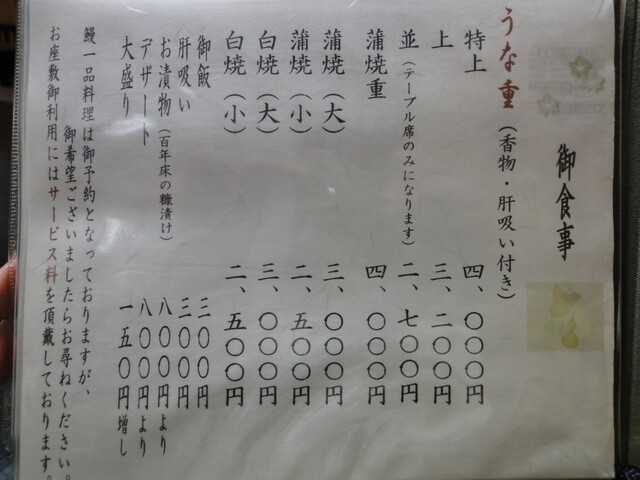 御食事
うな重（香物・肝吸い付き）
特上 四、〇〇〇円
上 三、二〇〇円
並（テーブル席のみになります） 二、七〇〇円
蒲焼重 四、〇〇〇円
蒲焼（大） 三、〇〇〇円
蒲焼（小） 二、五〇〇円
白焼（大） 三、〇〇〇円
白焼（小） 二、五〇〇円
御飯 三〇〇円
肝吸い 三〇〇円
お漬物（百年床の糠漬け） 八〇〇円より
デザート 八〇〇円より
大盛り 一五〇円増し
鰻一品料理は御予約となっておりますが、
御希望ございましたらお尋ねください。
お座敷御利用にはサービス料を頂戴しております。